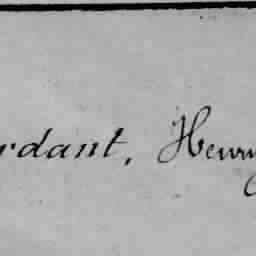 rdant, Henry